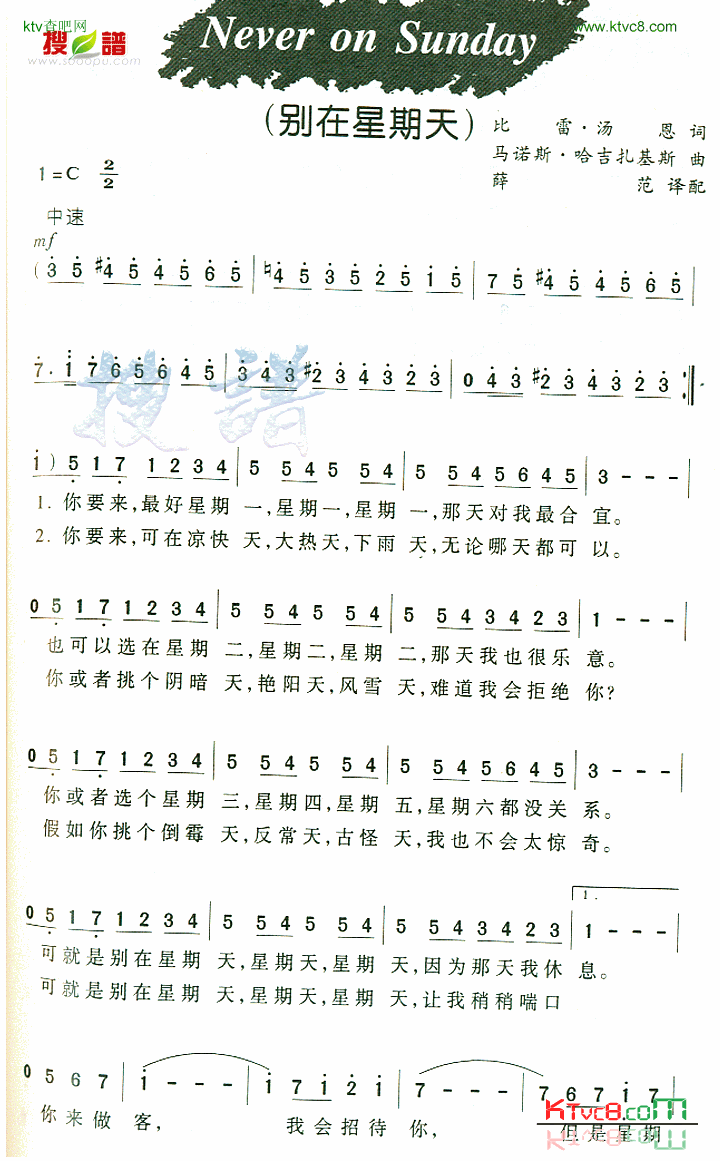 ktv查吧网
www.ktvc8.com
搜谱
www.sooopu.com
Never on Sunday
(别在星期天)
比雷·汤恩 词
马诺斯·哈吉扎基斯 曲
薛范 译配
1=C 2/2
中速
mf
(3 5 #4 5 4 5 6 5 | ♮4 5 3 5 2 5 1 5 | 7 5 #4 5 4 5 6 5 |
7. 1 7 6 5 6 4 5 | 3 4 3 #2 3 4 3 2 3 | 0 4 3 #2 3 4 3 2 3 :||
1) 5 1 7 1 2 3 4 | 5 5 4 5 5 4 | 5 5 4 5 6 4 5 | 3 - - -
1. 你要来,最好星期 一,星期一,星期 一,那天对我最合 宜。
2. 你要来,可在凉快 天,大热天,下雨 天,无论哪天都可 以。
0 5 1 7 1 2 3 4 | 5 5 4 5 5 4 | 5 5 4 3 4 2 3 | 1 - - - |
也可以选在星期 二,星期二,星期 二,那天我也很乐 意。
你或者挑个阴暗 天,艳阳天,风雪 天,难道我会拒绝 你?
0 5 1 7 1 2 3 4 | 5 5 4 5 5 4 | 5 5 4 5 6 4 5 | 3 - - - |
你或者选个星期 三,星期四,星期 五,星期六都没关 系。
假如你挑个倒霉 天,反常天,古怪 天,我也不会太惊 奇。
1.
0 5 1 7 1 2 3 4 | 5 5 4 5 5 4 | 5 5 4 3 4 2 3 | 1 - - - |
可就是别在星期 天,星期天,星期 天,因为那天我休 息。
可就是别在星期 天,星期天,星期 天,让我稍稍喘口
0 5 6 7 | 1 - - - | 1 7 1 2 1 | 7 - - - | 7 6 7 1 7 |
你来做 客, 我会招待 你, 但是星期
KTvc8.com